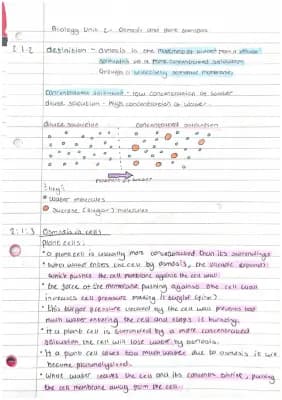 Biology Unit 2- Osmosis and plant transport
2.1.2 definition - osmosis is the movement of water from a dilute
solution to a more concentrated solution
through a selectively permeable membrane.
Concentrated solution - low concentration of water
dilute solution - high concentration of water
dilute solution concentrated solution
movement of water
key:
water molecules
Sucrose (sugar) molecules
2.1.3 Osmosis in cells
plant cells:
• a plant cell is usually more concentrated than its surroundings
• water enters the cell by osmosis, the vacuole expands
which pushes the cell membrane against the cell wall.
• the force of the membrane pushing against the cell wall
increases cell pressure making it turgid (firm)
• this turgor pressure created by the cell wall prevents too
much water entering the cell and stops it bursting.
• If a plant cell is surrounded by a more concentrated
solution the cell will lose water by osmosis.
• If a plant cell loses too much water due to osmosis it will
become plasmolysed.
• When water leaves the cell and its contents shrink, pulling
the cell membrane away from the cell